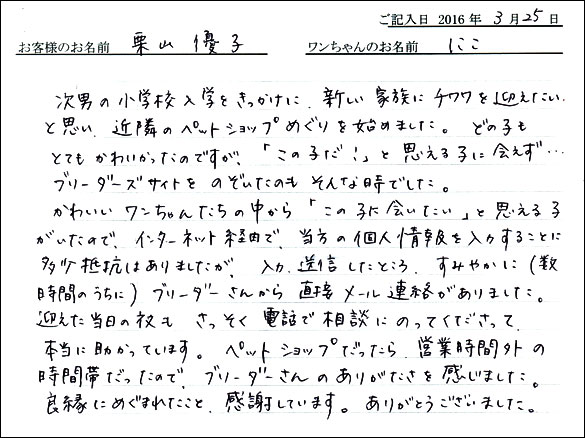 ご記入日 2016年 3月25日
お客様のお名前 栗山 優子 ワンちゃんのお名前 にこ
次男の小学校入学をきっかけに、新しい家族にチワワを迎えたい
と思い、近隣のペットショップめぐりを始めました。どの子も
とてもかわいかったのですが、「この子だ!」と思える子に会えず…
ブリーダーズサイトをのぞいたのもそんな時でした。
かわいいワンちゃんたちの中から「この子に会いたい」と思える子
がいたので、インターネット経由で、当方の個人情報を入力することに
多少抵抗はありましたが、入力、送信したところ、すみやかに(数
時間のうちに)ブリーダーさんから直接メール連絡がありました。
迎えた当日の夜も さっそく電話で相談にのってくださって、
本当に助かっています。ペットショップだったら、営業時間外の
時間帯だったので、ブリーダーさんのありがたさを感じました。
良縁にめぐまれたこと、感謝しています。ありがとうございました。